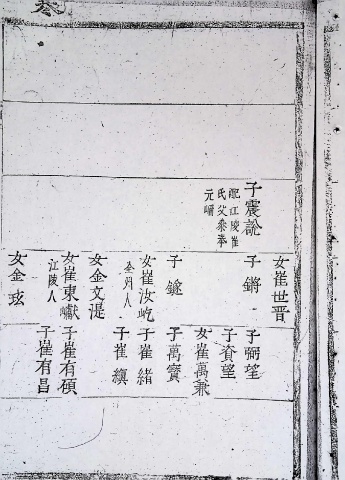 子震說
配江陵崔
氏父秉奉
元嶍
女崔世晋
子鏘
子鐩
女崔汝屹
全州人
女金文湜
女崔東嘯
江陵人
女金玹
子弼望
子資望
女崔萬兼
子萬寳
子崔緒
子崔縝
子崔有碩
子崔有昌